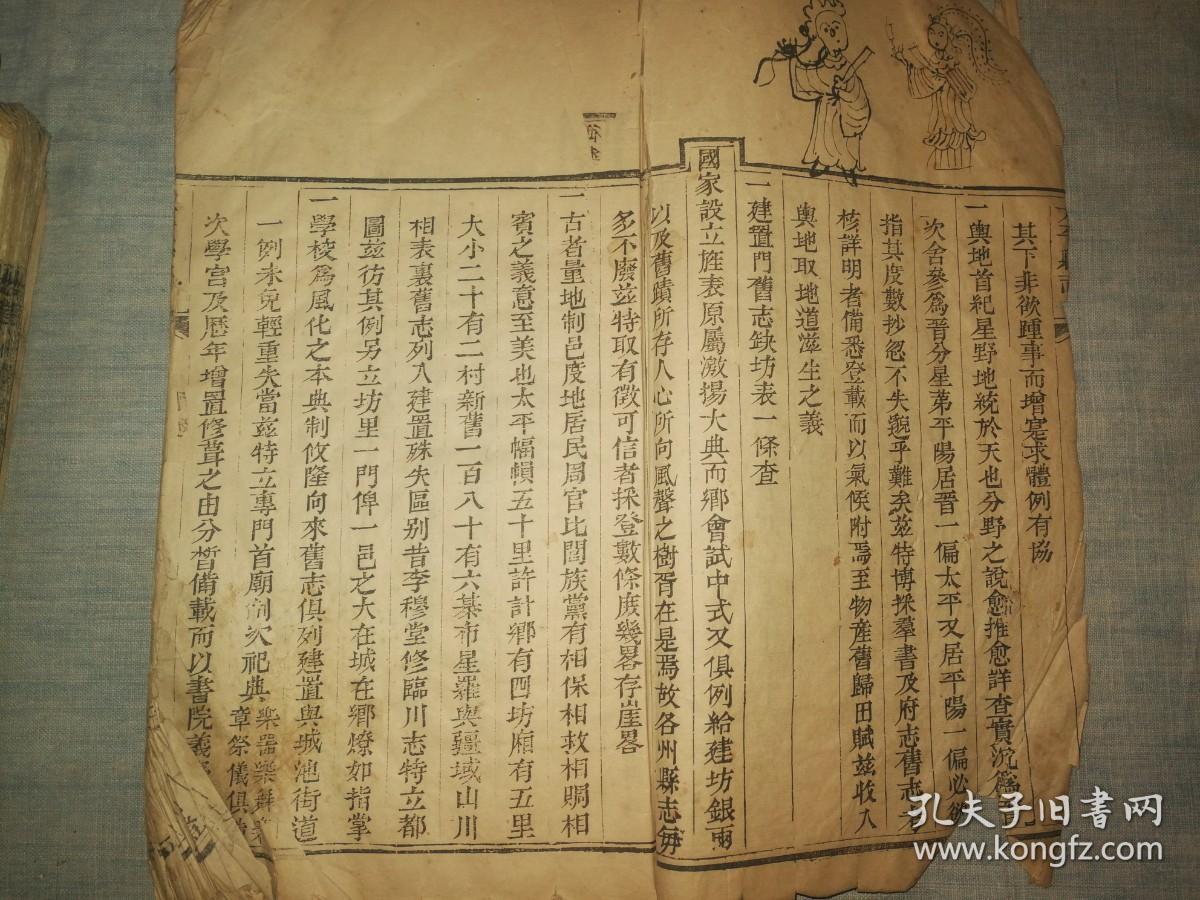 其下非欲踵事而增寔求體例有協
一輿地首紀星野地統於天也分野之說愈推愈詳查實沈爲
次舍參爲晉分星第平陽居晋一偏太平又居平陽一偏必欲
指其度數抄忽不失趨乎難矣茲特博採羣書及府志舊志
核詳明者備悉登載而以氣候附焉至物産舊歸田賦茲收入
輿地取地道滋生之義
一建置門舊志缺坊表一條查
國家設立旌表原屬激揚大典而鄉會試中式又俱例給建坊銀兩
以及舊蹟所存人心所向風聲之樹胥在是焉故各州縣志每
多不廢茲特取有徵可信者採登數條庶幾畧存崖畧
一古者量地制邑度地居民周官比閭族黨有相保相救相賙相
賓之義意至美也太平幅幀五十里許計鄉有四坊廂有五里
大小二十有二村新舊一百八十有六棊布星羅與疆域山川
相表裏舊志列入建置殊失區别昔李穆堂修臨川志特立都
圖茲彷其例另立坊里一門俾一邑之大在城在鄉燎如指掌
一學校爲風化之本典制攸隆向來舊志俱列建置與城池街道
一例未免輕重失當茲特立專門首廟制次祀典樂器樂舞樂章祭儀俱
次學宮及歷年增置修葺之由分晳備載而以書院義
孔夫子旧书网
www.kongfz.com